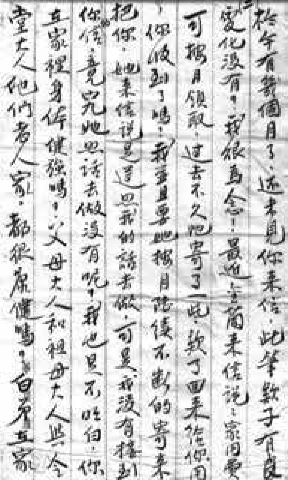 於今有幾個月了還未見你來信此筆款子有良
變化沒有?我很爲念!最近金蘭來信說:家用費
可按月領取.過去不久她寄了一些款丁回來給你用
,你收到了嗎?我並且要她按月陸續不斷的寄來
把你.她來信說是這照我的話去做.可是,我沒有接到
你信.竟究她照話去做沒有呢?我也是不明白.你
在家裡身体健強嗎?父母大人和祖母大人與令
堂大人他們老人家.都很康健嗎?白弟在家